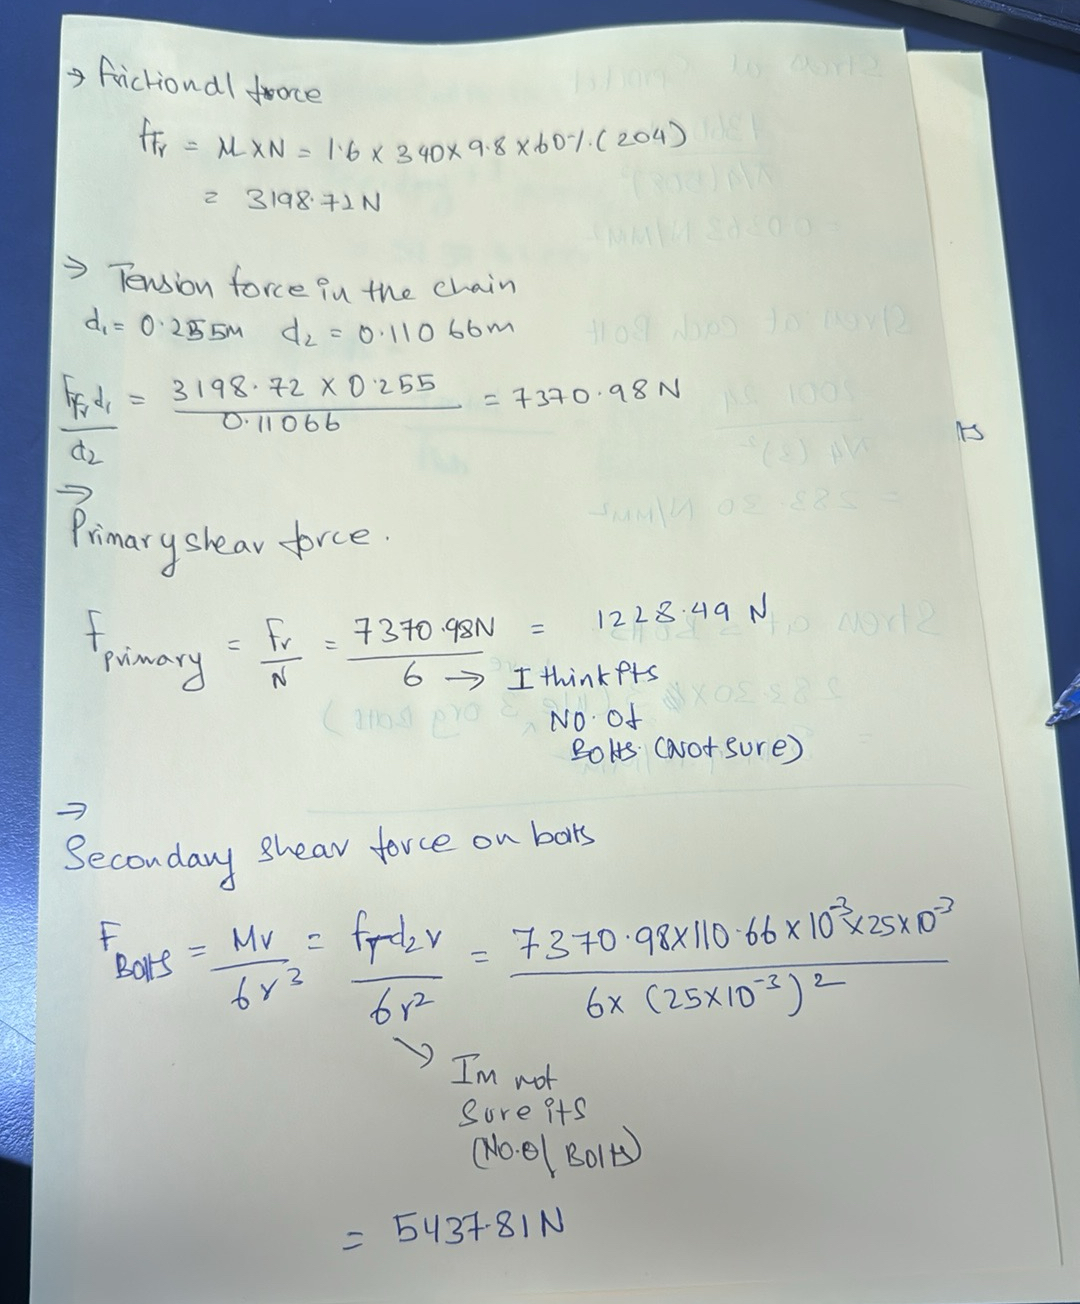 → frictional force
Ffr = M x N = 1.6 x 340 x 9.8 x 60%. (204)
= 3198.72 N
⇒ Tension force in the chain
d₁ = 0.255m d₂ = 0.11066m
Ffr d₁ / d₂ = 3198.72 x 0.255 / 0.11066 = 7370.98 N
ts
⇒
Primary shear force.
Fprimary = Fr / N = 7370.98N / 6 = 1228.49 N
→ I think its
No. of
Bolts (Not sure)
⇒
Secondary shear force on bolts
FBolts = Mr / 6r³ = fT d₂ r / 6r² = 7370.98 x 110.66 x 10⁻³ x 25 x 10⁻³ / 6x (25x10⁻³)²
↘ Im not
Sure its
(No. of Bolts)
= 5437.81 N